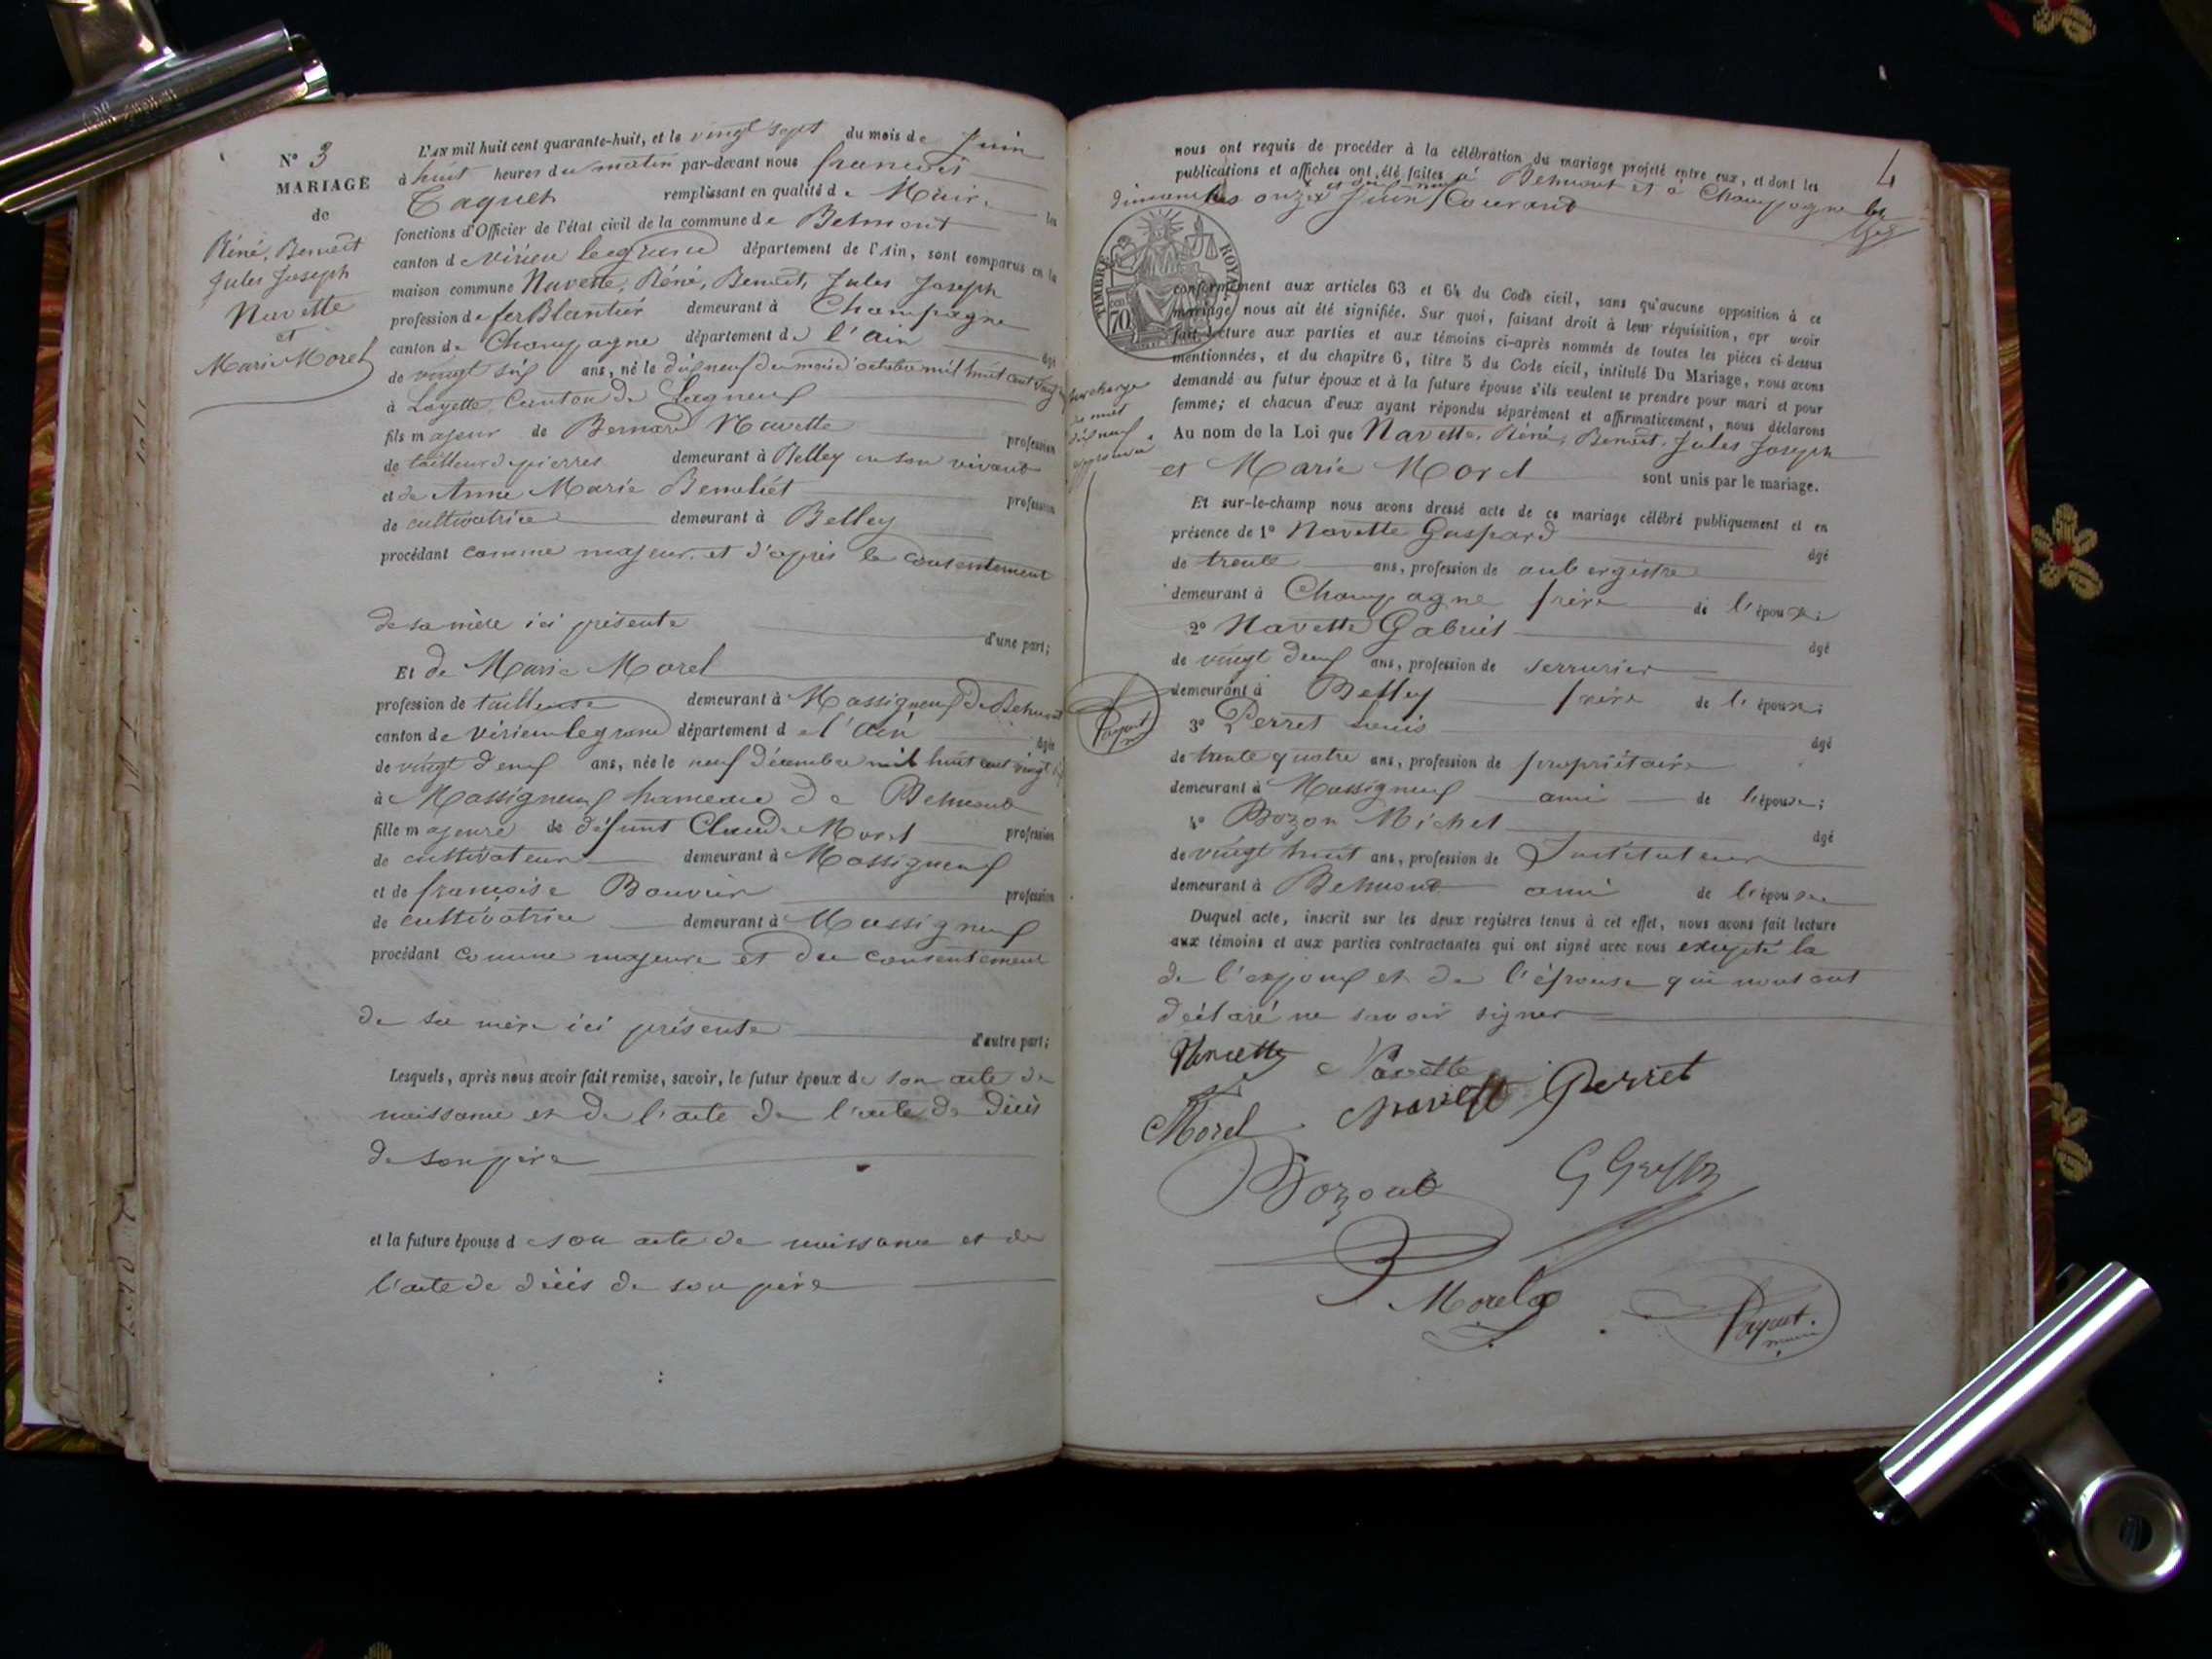 N° 3
MARIAGE
de
Réné, Benoit
Jules Joseph
Navette
et
Marie Morel
L'AN mil huit cent quarante-huit, et le vingt sept du mois de Juin
à huit heures du matin par-devant nous francois
remplissant en qualité de Maire les
fonctions d'Officier de l'état civil de la commune de Belmont
canton de Virieu legrand département de l'Ain, sont comparus en la
maison commune Navette, Réné, Benoit, Jules Joseph
profession de ferBlantier demeurant à Champagne
canton de Champagne département de l'ain âgé
de vingt six ans, né le dix neuf du mois d'octobre mil huit cent vingt
à Loyette Canton de Lagneux
fils majeur de Bernard Navette profession
de tailleur de pierres demeurant à Belley en son vivant
et de Anne Marie profession
de cultivatrice demeurant à Belley
procédant comme majeur et d'après le consentement
de sa mère ici présente d'une part;
Et de Marie Morel
profession de tailleuse demeurant à Massigneux de Belmont
canton de virieu legrand département de l'ain âgée
de vingt deux ans, née le neuf décembre mil huit cent vingt
à Massigneux hameau de Belmont
fille majeure de défunt Claude Morel profession
de cultivateur demeurant à Massigneux
et de françoise Bouvier profession
de cultivatrice demeurant à Massigneux
procédant comme majeure et du consentement
de sa mère ici présente d'autre part;
Lesquels, après nous avoir fait remise, savoir, le futur époux de son acte de
naissance et de l'acte de l'acte de décès
de son père
et la future épouse de son acte de naissance et de
l'acte de décès de son père
4
nous ont requis de procéder à la célébration du mariage projeté entre eux, et dont les
publications et affiches ont été faites à Belmont et à Champagne les
dimanches onze et dix-neuf Juin Courant
TIMBRE ROYAL
70
conformément aux articles 63 et 64 du Code civil, sans qu'aucune opposition à ce
mariage nous ait été signifiée. Sur quoi, faisant droit à leur réquisition, apr avoir
fait lecture aux parties et aux témoins ci-après nommés de toutes les pièces ci-dessus
mentionnées, et du chapitre 6, titre 5 du Code civil, intitulé Du Mariage, nous avons
demandé au futur époux et à la future épouse s'ils veulent se prendre pour mari et pour
femme; et chacun d'eux ayant répondu séparément et affirmativement, nous déclarons
Au nom de la Loi que Navette, Réné, Benoit, Jules Joseph
et Marie Morel sont unis par le mariage.
surcharge
du mot
dix neuf
approuvé
Payent
Et sur-le-champ nous avons dressé acte de ce mariage célébré publiquement et en
présence de 1° Navette Gaspard âgé
de trente ans, profession de aubergiste
demeurant à Champagne frère de l'époux;
2° Navette Gabriel âgé
de vingt deux ans, profession de serrurier
demeurant à Belley frère de l'époux;
3° Perret Louis âgé
de trente quatre ans, profession de propriétaire
demeurant à Massigneux ami de l'épouse;
4° Bozon Michel âgé
de vingt huit ans, profession de Instituteur
demeurant à Belmont ami de l'épouse
Duquel acte, inscrit sur les deux registres tenus à cet effet, nous avons fait lecture
aux témoins et aux parties contractantes qui ont signé avec nous excepté la
de l'époux et de l'épouse qui nous ont
déclaré ne savoir signer
Navette Navette
Morel Navette Perret
Bozon
Morel
Payent
maire